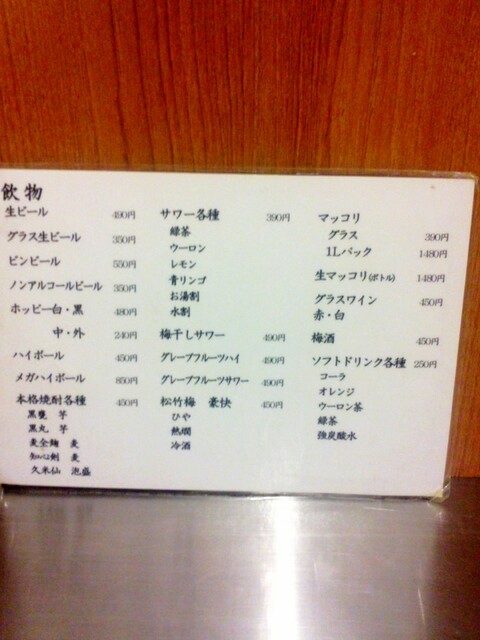 飲物
生ビール 490円
グラス生ビール 350円
ビンビール 550円
ノンアルコールビール 350円
ホッピー白・黒 480円
中・外 240円
ハイボール 450円
メガハイボール 850円
本格焼酎各種 450円
黒甕 芋
黒丸 芋
麦全麹 麦
知心剣 麦
久米仙 泡盛
サワー各種 390円
緑茶
ウーロン
レモン
青リンゴ
お湯割
水割
梅干しサワー 490円
グレープフルーツハイ 490円
グレープフルーツサワー 490円
松竹梅 豪快 450円
ひや
熱燗
冷酒
マッコリ
グラス 390円
1Lパック 1480円
生マッコリ(ボトル) 1480円
グラスワイン 450円
赤・白
梅酒 450円
ソフトドリンク各種 250円
コーラ
オレンジ
ウーロン茶
緑茶
強炭酸水